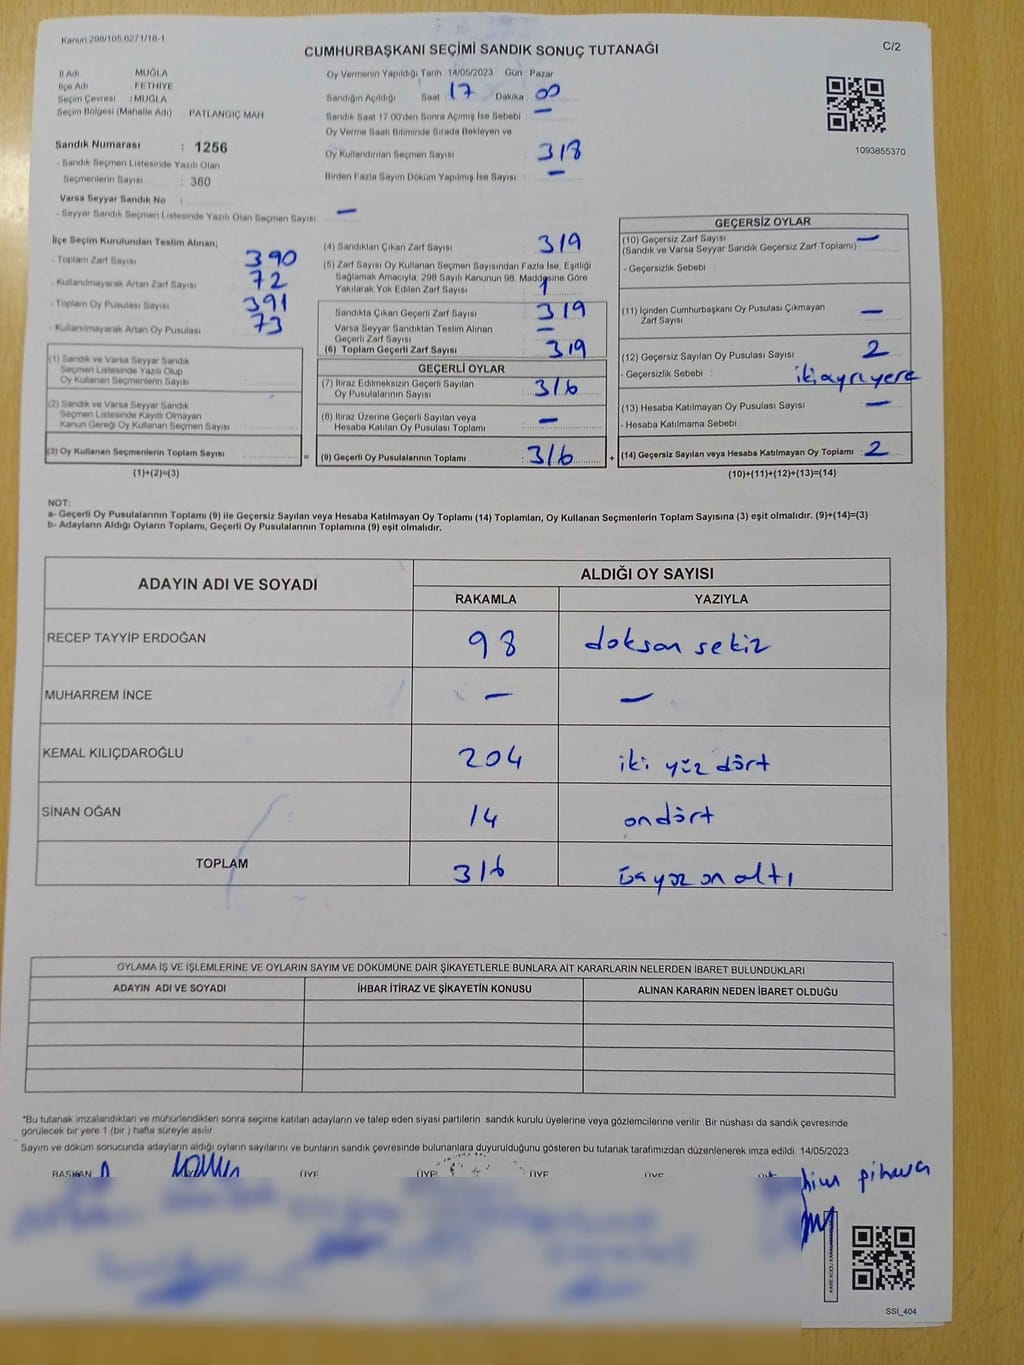 Kanun:298/105,6271/18-1
CUMHURBAŞKANI SEÇİMİ SANDIK SONUÇ TUTANAĞI
C/2
İl Adı MUĞLA
İlçe Adı FETHİYE
Seçim Çevresi : MUĞLA
Seçim Bölgesi (Mahalle Adı) PATLANGIÇ MAH
Sandık Numarası : 1256
- Sandık Seçmen Listesinde Yazılı Olan
Seçmenlerin Sayısı : 380
Varsa Seyyar Sandık No :
- Seyyar Sandık Seçmen Listesinde Yazılı Olan Seçmen Sayısı —
Oy Vermenin Yapıldığı Tarih 14/05/2023 Gün : Pazar
Sandığın Açıldığı Saat : 17 Dakika : 00
Sandık Saat 17.00'den Sonra Açımış İse Sebebi : —
Oy Verme Saati Bitiminde Sırada Bekleyen ve
Oy Kullandırılan Seçmen Sayısı : 318
Birden Fazla Sayım Döküm Yapılmış İse Sayısı : —
1093855370
İlçe Seçim Kurulundan Teslim Alınan;
- Toplam Zarf Sayısı 390
- Kullanılmayarak Artan Zarf Sayısı 72
- Toplam Oy Pusulası Sayısı 391
- Kullanılmayarak Artan Oy Pusulası 73
(1) Sandık ve Varsa Seyyar Sandık
Seçmen Listesinde Yazılı Olup
Oy Kullanan Seçmenlerin Sayısı
(2) Sandık ve Varsa Seyyar Sandık
Seçmen Listesinde Kayıtlı Olmayan
Kanun Gereği Oy Kullanan Seçmen Sayısı
(3) Oy Kullanan Seçmenlerin Toplam Sayısı =
(1)+(2)=(3)
(4) Sandıktan Çıkan Zarf Sayısı : 319
(5) Zarf Sayısı Oy Kullanan Seçmen Sayısından Fazla İse, Eşitliği
Sağlamak Amacıyla; 298 Sayılı Kanunun 98. Maddesine Göre
Yakılarak Yok Edilen Zarf Sayısı 1
Sandıkta Çıkan Geçerli Zarf Sayısı : 319
Varsa Seyyar Sandıktan Teslim Alınan
Geçerli Zarf Sayısı —
(6) Toplam Geçerli Zarf Sayısı : 319
GEÇERLİ OYLAR
(7) İtiraz Edilmeksizin Geçerli Sayılan
Oy Pusulalarının Sayısı : 316
(8) İtiraz Üzerine Geçerli Sayılan veya
Hesaba Katılan Oy Pusulası Toplamı : —
(9) Geçerli Oy Pusulalarının Toplamı : 316 +
GEÇERSİZ OYLAR
(10) Geçersiz Zarf Sayısı —
(Sandık ve Varsa Seyyar Sandık Geçersiz Zarf Toplamı) :
- Geçersizlik Sebebi :
(11) İçinden Cumhurbaşkanı Oy Pusulası Çıkmayan
Zarf Sayısı —
(12) Geçersiz Sayılan Oy Pusulası Sayısı : 2
- Geçersizlik Sebebi : iki ayrı yere
(13) Hesaba Katılmayan Oy Pusulası Sayısı : —
- Hesaba Katılmama Sebebi :
(14) Geçersiz Sayılan veya Hesaba Katılmayan Oy Toplamı : 2
(10)+(11)+(12)+(13)=(14)
NOT:
a- Geçerli Oy Pusulalarının Toplamı (9) ile Geçersiz Sayılan veya Hesaba Katılmayan Oy Toplamı (14) Toplamları, Oy Kullanan Seçmenlerin Toplam Sayısına (3) eşit olmalıdır. (9)+(14)=(3)
b- Adayların Aldığı Oyların Toplamı, Geçerli Oy Pusulalarının Toplamına (9) eşit olmalıdır.
ADAYIN ADI VE SOYADI
ALDIĞI OY SAYISI
RAKAMLA YAZIYLA
RECEP TAYYİP ERDOĞAN 98 doksan sekiz
MUHARREM İNCE — —
KEMAL KILIÇDAROĞLU 204 iki yüz dört
SİNAN OĞAN 14 ondört
TOPLAM 316 üç yüz on altı
OYLAMA İŞ VE İŞLEMLERİNE VE OYLARIN SAYIM VE DÖKÜMÜNE DAİR ŞİKAYETLERLE BUNLARA AİT KARARLARIN NELERDEN İBARET BULUNDUKLARI
ADAYIN ADI VE SOYADI İHBAR İTİRAZ VE ŞİKAYETİN KONUSU ALINAN KARARIN NEDEN İBARET OLDUĞU
*Bu tutanak imzalandıktan ve mühürlendikten sonra seçime katılan adayların ve talep eden siyasi partilerin sandık kurulu üyelerine veya gözlemcilerine verilir .Bir nüshası da sandık çevresinde
görülecek bir yere 1 (bir ) hafta süreyle asılır.
Sayım ve döküm sonucunda adayların aldığı oyların sayılarını ve bunların sandık çevresinde bulunanlara duyurulduğunu gösteren bu tutanak tarafımızdan düzenlenerek imza edildi. 14/05/2023
BAŞKAN ÜYE ÜYE ÜYE
SSI_404